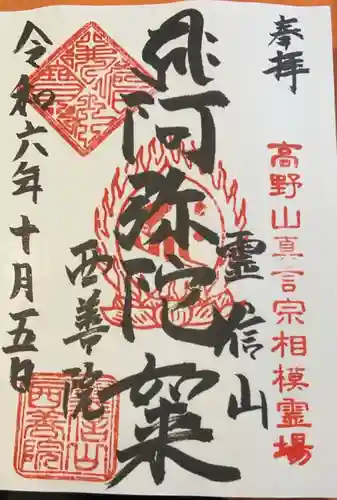 奉拝
高野山真言宗相模霊場
霊信山
阿弥陀
西善院
令和六年十月五日
西善院